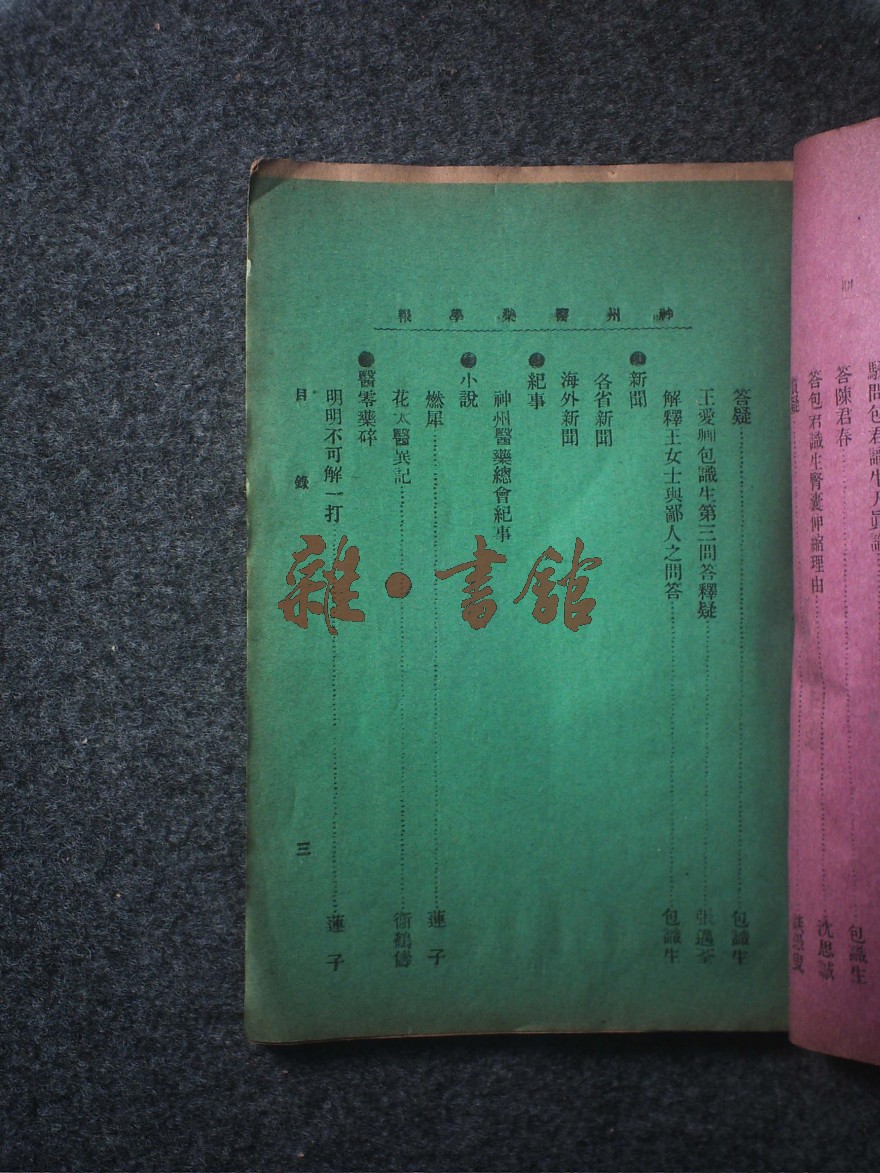 神州醫藥學報
答疑 包識生
王愛卿包識生第三問答釋疑 張遇荃
解釋王女士與鄙人之問答 包識生
新聞
各省新聞
海外新聞
紀事
神州醫藥總會紀事
小說
燃犀 蓮子
花太醫異記 衞鶴儔
醫零藥碎
明明不可解一打 蓮子
目錄 三
雜·書館
答陳君春 包識生
答包君識生腎囊伸縮理由 沈思誠